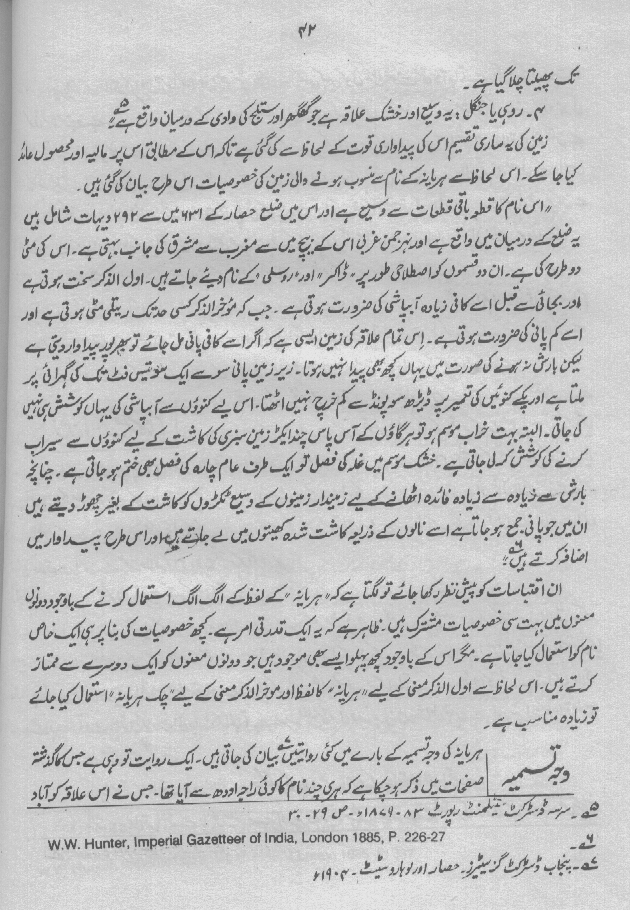 ۴۲
تک پھیلتا چلا گیا ہے۔
۴۔ روہی یا جنگل: یہ وسیع اور خشک علاقہ ہے جو گھگھر اور ستلج کی وادی کے درمیان واقع ہے"۵
زمین کی یہ ساری تقسیم اس کی پیداواری قوت کے لحاظ سے کی گئی ہے تاکہ اس کے مطابق اس پر مالیہ اور محصول عائد
کیا جا سکے۔ اس لحاظ سے ہریانہ کے نام سے منسوب ہونے والی زمین کی خصوصیات اس طرح بیان کی گئی ہیں۔
"اس نام کا قطعہ باقی قطعات سے وسیع ہے اور اس میں ضلع حصار کے ۶۳۱ میں سے ۲۹۲ دیہات شامل ہیں
یہ ضلع کے درمیان میں واقع ہے اور نہر جمن غربی اس کے بیچ میں سے مغرب سے مشرق کی جانب بہتی ہے۔ اس کی مٹی
دو طرح کی ہے۔ ان دو قسموں کو اصطلاحی طور پر "ڈاکر" اور "روسلی" کے نام دیئے جاتے ہیں۔ اول الذکر سخت ہوتی ہے
اور بجائی سے قبل اسے کافی زیادہ آبپاشی کی ضرورت ہوتی ہے۔ جب کہ مؤخر الذکر کسی حد تک ریتلی مٹی ہوتی ہے اور
اسے کم پانی کی ضرورت ہوتی ہے۔ اس تمام علاقہ کی زمین ایسی ہے کہ اگر اسے کافی پانی مل جائے تو بھرپور پیداوار دیتی ہے
لیکن بارش نہ ہونے کی صورت میں یہاں کچھ بھی پیدا نہیں ہوتا۔ زیر زمین پانی سو سے ایک سو تیس فٹ تک کی گہرائی پر
ملتا ہے اور پکے کنوئیں کی تعمیر پر ڈیڑھ سو پونڈ سے کم خرچ نہیں اٹھتا۔ اس لیے کنوؤں سے آبپاشی کی یہاں کوشش ہی نہیں
کی جاتی۔ البتہ بہت خراب موسم ہو تو ہر گاؤں کے آس پاس چند ایکڑ زمین سبزی کی کاشت کے لیے کنوؤں سے سیراب
کرنے کی کوشش کر لی جاتی ہے۔ خشک موسم میں غلہ کی فصل تو ایک طرف عام چارہ کی فصل بھی ختم ہو جاتی ہے۔ چنانچہ
بارش سے زیادہ سے زیادہ فائدہ اٹھانے کے لیے زمیندار زمینوں کے وسیع ٹکڑوں کو کاشت کے بغیر چھوڑ دیتے ہیں
ان میں جو پانی جمع ہو جاتا ہے اسے نالوں کے ذریعہ کاشت شدہ کھیتوں میں لے جاتے ہیں اور اس طرح پیداوار میں
اضافہ کرتے ہیں"۶
ان اقتباسات کو پیش نظر رکھا جائے تو لگتا ہے کہ "ہریانہ" کے لفظ کے الگ الگ استعمال کرنے کے باوجود دونوں
معنوں میں بہت سی خصوصیات مشترک ہیں۔ ظاہر ہے کہ یہ ایک قدرتی امر ہے۔ کچھ خصوصیات کی بنا پر ہی ایک خاص
نام کو استعمال کیا جاتا ہے۔ مگر اس کے باوجود کچھ پہلو ایسے بھی موجود ہیں جو دونوں معنوں کو ایک دوسرے سے ممتاز
کرتے ہیں۔ اس لحاظ سے اول الذکر معنی کے لیے "ہریانہ" کا لفظ اور مؤخر الذکر معنی کے لیے "چک ہریانہ" استعمال کیا جائے
تو زیادہ مناسب ہے۔
وجہ تسمیہ
ہریانہ کی وجہ تسمیہ کے بارے میں کئی روایتیں۷ بیان کی جاتی ہیں۔ ایک روایت تو وہی ہے جس کا گذشتہ
صفحات میں ذکر ہو چکا ہے کہ ہری چند نام کا کوئی راجہ اودھ سے آیا تھا۔ جس نے اس علاقہ کو آباد
۵۔ سرسہ ڈسٹرکٹ سیٹلمنٹ رپورٹ ۸۳-۱۸۷۹ء۔ ص ۲۹۔۳۰
۶۔ W.W. Hunter, Imperial Gazetteer of India, London 1885, P. 226-27
۷۔ پنجاب ڈسٹرکٹ گزیٹیرز۔ حصار اور لوہارو سٹیٹ۔ ۱۹۰۴ء